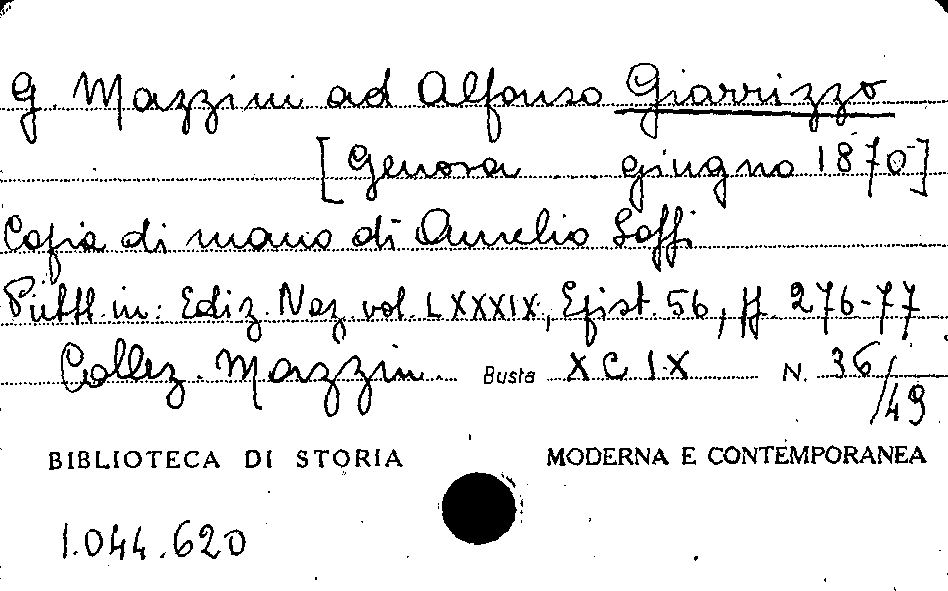 G. Mazzini ad Alfonso Giarrizzo
[Genova giugno 1870]
Copia di mano di Aurelio Saffi
Pubbl. in: Ediz. Naz. vol. LXXXIX, Epist. 56, pp. 276-77
Collez. Mazzini Busta XCIX N. 36/49
BIBLIOTECA DI STORIA MODERNA E CONTEMPORANEA
1.044.620